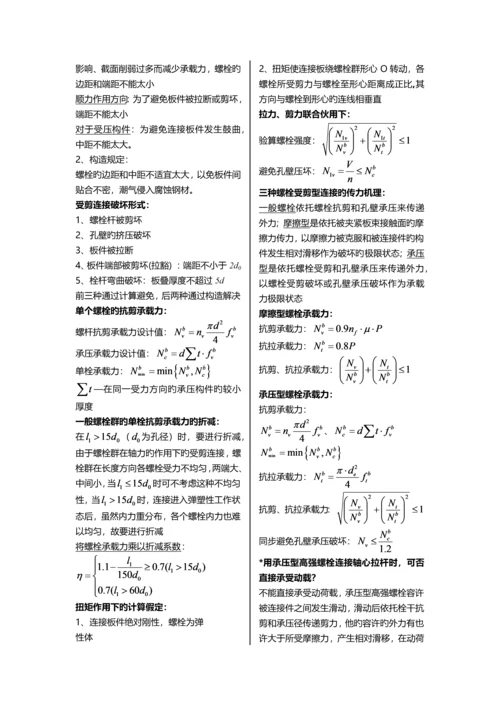 影响、截面削弱过多而减少承载力，螺栓的
边距和端距不能太小
顺力作用方向: 为了避免板件被拉断或剪坏，
端距不能太小
对于受压构件：为避免连接板件发生鼓曲，
中距不能太大。
2、构造规定：
螺栓的边距和中距不适宜太大，以免板件间
贴合不密，潮气侵入腐蚀钢材。
受剪连接破坏形式：
1、螺栓杆被剪坏
2、孔壁的挤压破坏
3、板件被拉断
4、板件端部被剪坏(拉豁) ：端距不小于 2d₀
5、栓杆弯曲破坏：板叠厚度不超过 5d
前三种通过计算避免，后两种通过构造解决
单个螺栓的抗剪承载力：
螺杆抗剪承载力设计值： N_v^b = n_v πd²/4 f_v^b
承压承载力设计值： N_c^b = d∑t · f_v^b
单栓承载力： N_min^b = min{N_v^b, N_c^b}
∑t —在同一受力方向的承压构件的较小
厚度
一般螺栓群的单栓抗剪承载力的折减：
在 l₁ > 15d₀ （ d₀ 为孔径）时，要进行折减，
由于螺栓群在轴力的作用下的受剪连接，螺
栓群在长度方向各螺栓受力不均匀，两端大、
中间小，当 l₁ ≤ 15d₀ 时可不考虑这种不均匀
性，当 l₁ > 15d₀ 时，连接进入弹塑性工作状
态后，虽然内力重分布，各个螺栓内力也难
以均匀，故要进行折减
将螺栓承载力乘以折减系数：
η = { 1.1 − l₁/150d₀ ≥ 0.7(l₁ > 15d₀)
0.7(l₁ > 60d₀)
扭矩作用下的计算假定：
1、连接板件绝对刚性，螺栓为弹
性体
2、扭矩使连接板绕螺栓群形心 O 转动，各
螺栓所受剪力与螺栓至形心距离成正比，其
方向与螺栓到形心的连线相垂直
拉力、剪力联合伙用下：
验算螺栓强度： √((N_1v/N_v^b)² + (N_1t/N_t^b)²) ≤ 1
避免孔壁压坏： N_1v = V/n ≤ N_c^b
三种螺栓受剪型连接的传力机理：
一般螺栓依托螺栓抗剪和孔壁承压来传递
外力；摩擦型是依托被夹紧板束接触面的摩
擦力传力，以摩擦力被克服和被连接件的构
件发生相对滑移作为破坏的极限状态；承压
型是依托螺栓受剪和孔壁承压来传递外力，
以螺栓受剪破坏或孔壁承压破坏作为承载
力极限状态
摩擦型螺栓承载力：
抗剪承载力： N_v^b = 0.9n_f · μ · P
抗拉承载力： N_t^b = 0.8P
抗剪、抗拉承载力： (N_v/N_v^b) + (N_t/N_t^b) ≤ 1
承压型螺栓承载力：
抗剪承载力：
N_v^b = n_v πd²/4 f_v^b 、 N_c^b = d∑t · f_v^b
N_min^b = min{N_v^b, N_c^b}
抗拉承载力： N_t^b = π·d_e²/4 f_t^b
抗剪、抗拉承载力: √((N_v/N_v^b)² + (N_t/N_t^b)²) ≤ 1
同步避免孔壁承压破坏： N_v ≤ N_c^b/1.2
*用承压型高强螺栓连接轴心拉杆时，可否
直接承受动载？
不能直接承受动荷载，承压型高强螺栓容许
被连接件之间发生滑动，滑动后依托栓干抗
剪和承压径传递剪力，他旳容许旳外力有也
许大于所受摩擦力，产生相对滑移，在动荷